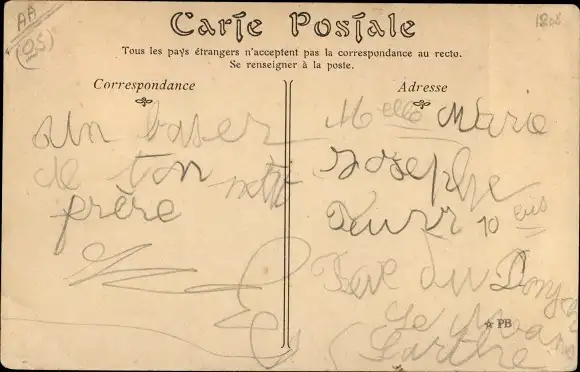 AA
(25)
Carte Postale
Tous les pays étrangers n'acceptent pas la correspondance au recto.
Se renseigner à la poste.
Correspondance
Adresse
un baser
de ton
frère
Melle Marie
Josephe
10 bis
Rue du
Le Mans
Sarthe
PB